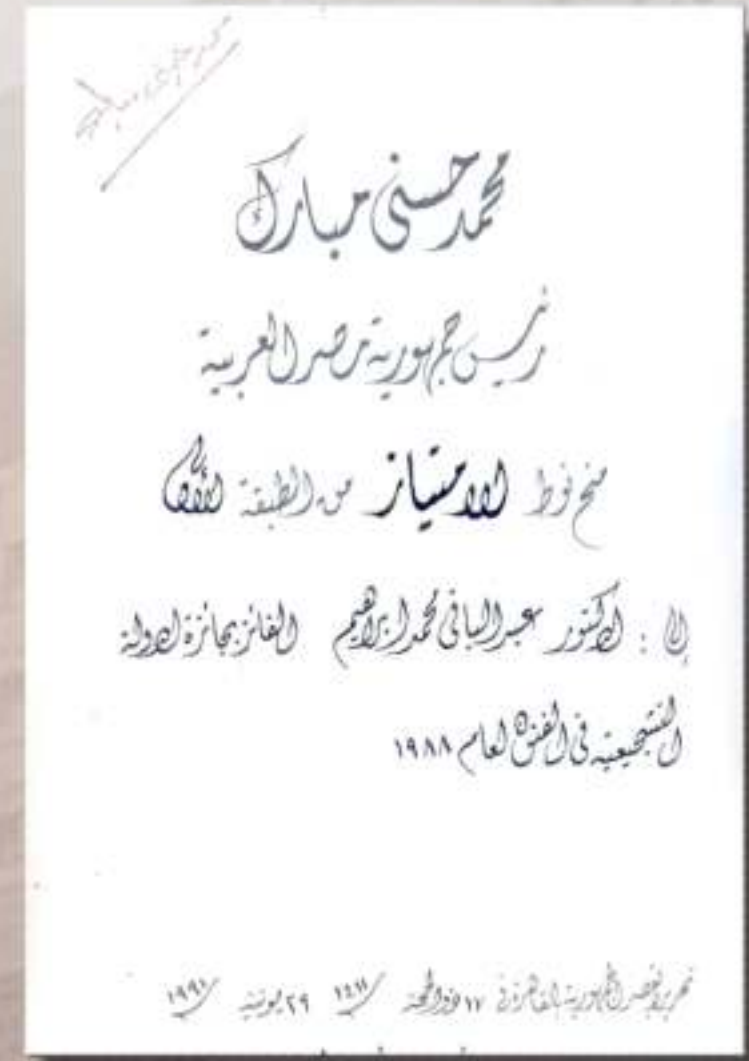 محمد حسنى مبارك
رئيس جمهورية مصر العربية
منح نوط الامتياز من الطبقة الأولى
إلى : الدكتور عبد الباقى محمد ابراهيم الفائز بجائزة الدولة
التشجيعية فى الفنون لعام ١٩٨٨
تحريرا بقصر الجمهورية بالقاهرة فى ١٧ ذو الحجة ١٤١١ ٢٩ يونيه ١٩٩١